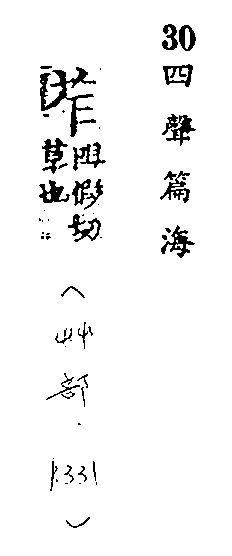 30四聲篇海
阻假切
草也
（艸部．P.331）